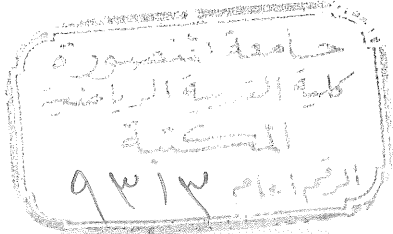 جامعة المنصورة
كلية التربية الرياضية
المكتبة
الرقم العام ٩٣١٣